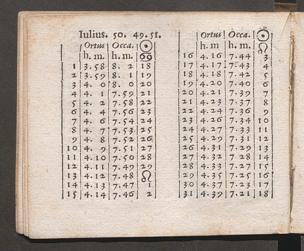 Iulius. 50. 49. 51.
Ortus Occa. ☉
h. m. h. m. ♋
1 3.58 8. 2 18
2 3.59 8. 1 19
3 4. 0 8. 0 20
4 4. 1 7.59 21
5 4. 2 7.58 22
6 4. 4 7.56 23
7 4. 6 7.54 24
8 4. 7 7.53 25
9 4. 8 7.52 26
10 4. 9 7.51 27
11 4.10 7.50 28
12 4.11 7.49 29
13 4.12 7.48 ♌
14 4.13 7.47 1
15 4.14 7.46 2
Ortus Occa. ☉
h. m. h. m. ♌
16 4.16 7.44 3
17 4.17 7.43 4
18 4.18 7.42 5
19 4.20 7.40 6
20 4.21 7.39 7
21 4.23 7.37 8
22 4.24 7.36 9
23 4.26 7.34 10
24 4.27 7.33 11
25 4.29 7.31 12
26 4.31 7.29 13
27 4.32 7.28 14
28 4.33 7.27 15
29 4.35 7.25 16
30 4.37 7.23 17
31 4.39 7.21 18